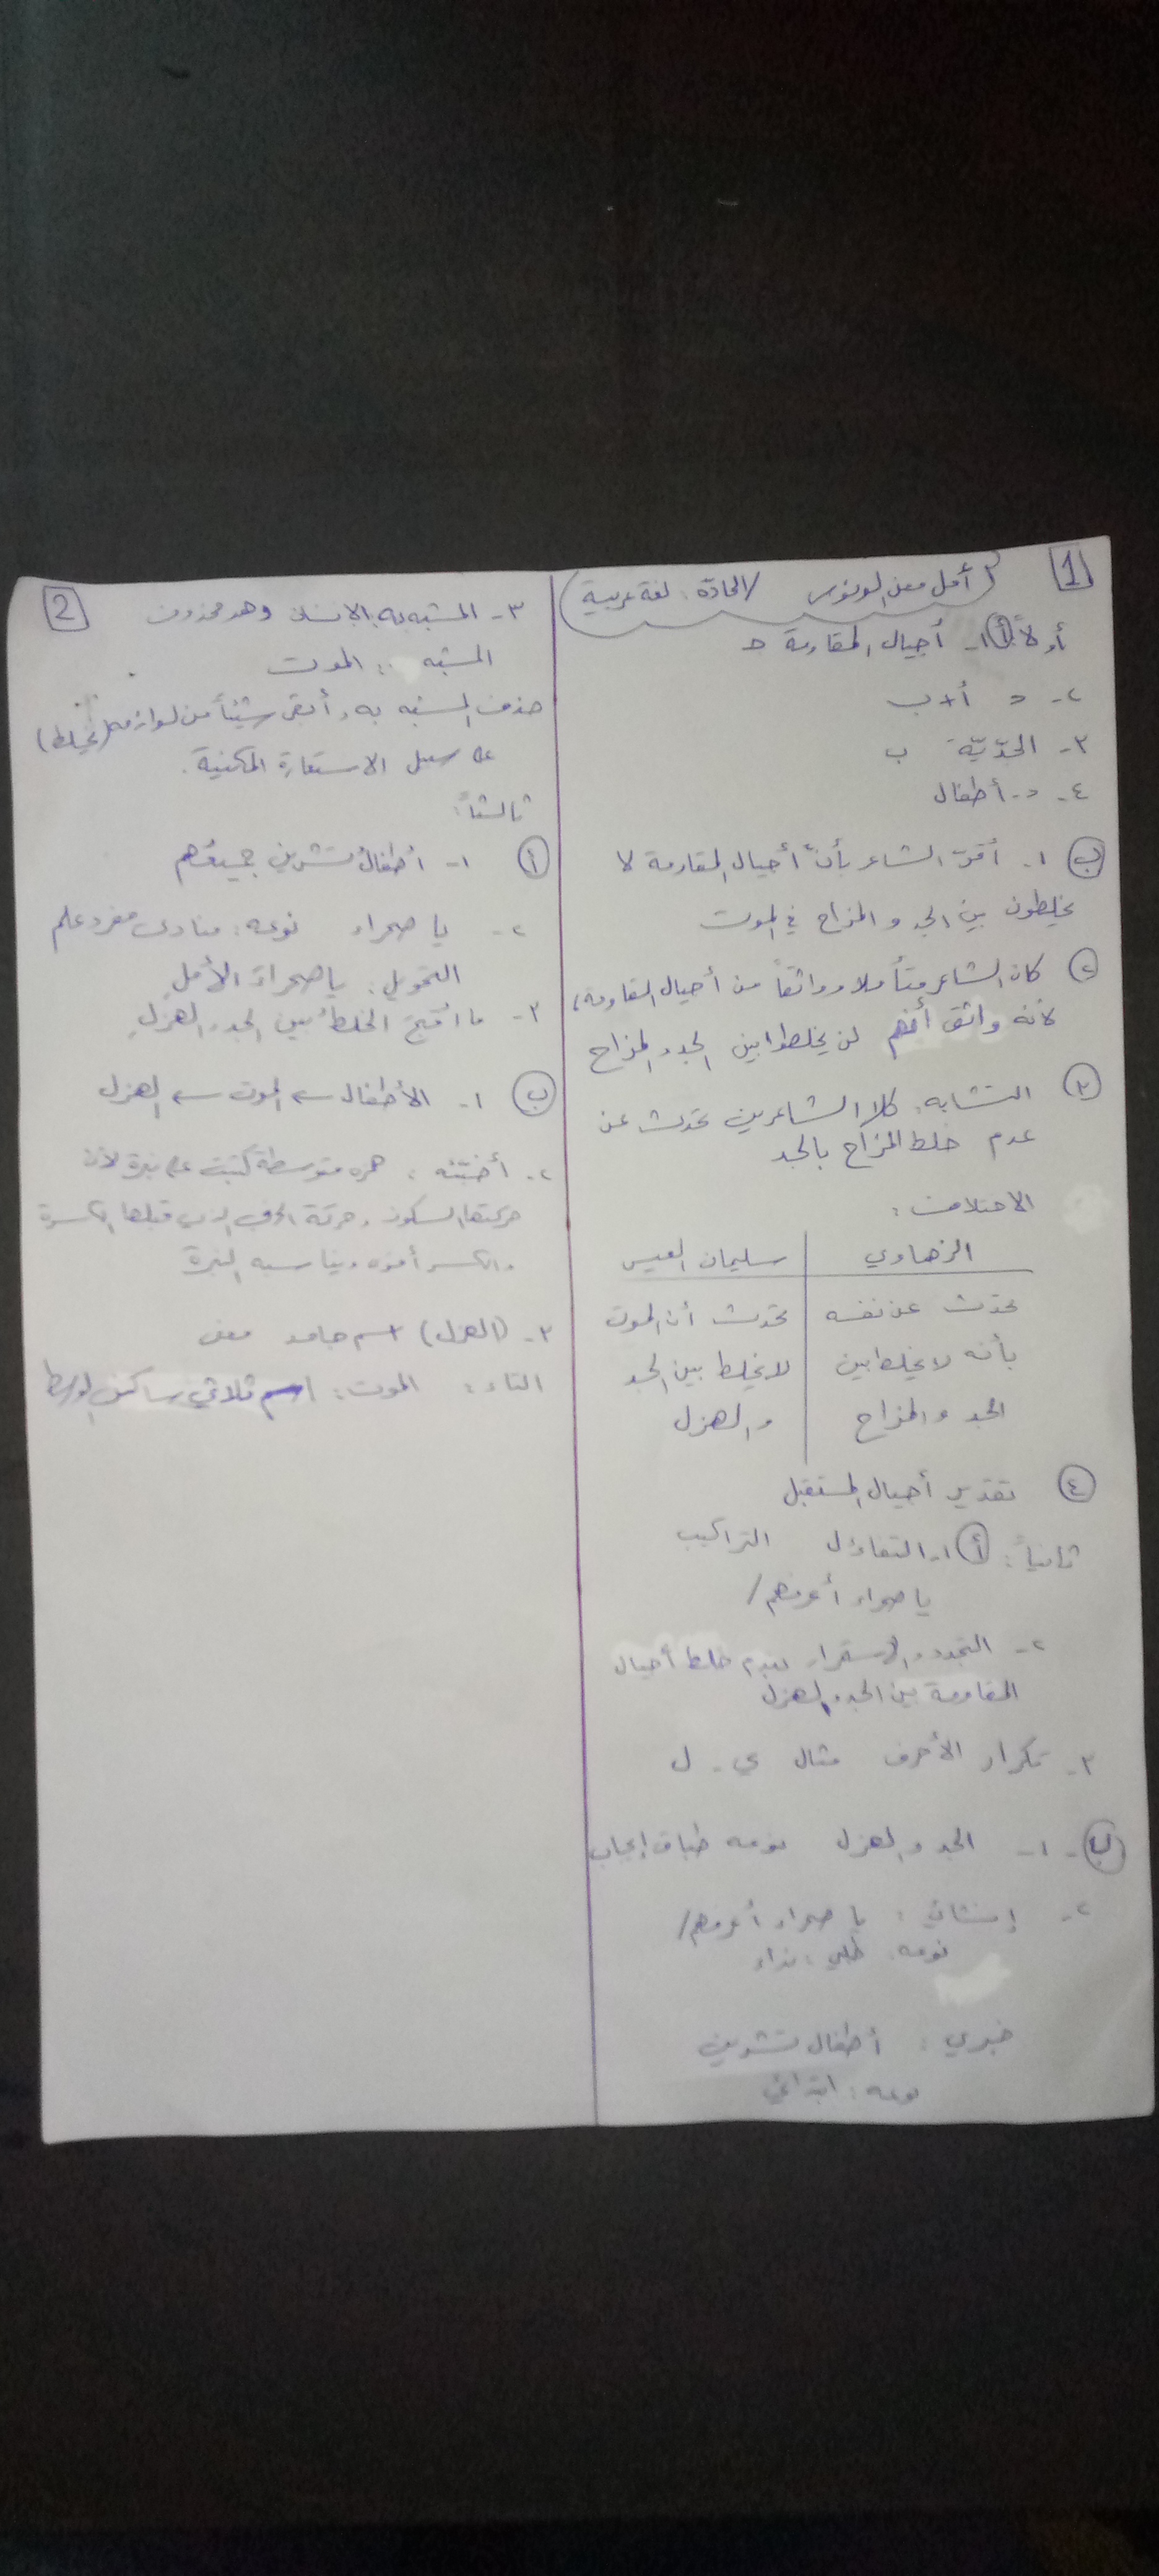 1
أمل معن الونوس / المادة: لغة عربية
أولاً: أ ١- أجيال المقاومة ح
٢- د أ+ب
٣- الجدّيّة ب
٤- د- أطفال
ب ١- أقرّ الشاعر بأنّ أجيال المقاومة لا
يخلطون بين الجد والمزاح في الموت
٢ كان الشاعر متأملاً وواثقاً من أجيال المقاومة،
لأنه واثق أنهم لن يخلطوا بين الجد والمزاح
٣ التشابه: كلا الشاعرين تحدث عن
عدم خلط المزاح بالجد
الاختلاف:
الزهاوي | سليمان العيسى
تحدث عن نفسه | تحدث أن الموت
بأنه لا يخلط بين | لا يخلط بين الجد
الجد والمزاح | والهزل
٤ تقدير أجيال المستقبل
ثانياً: أ ١- التفاؤل التراكيب
يا صحراء أعرفهم/
٢- التجدد والاستمرار بعدم خلط أجيال
المقاومة بين الجد والهزل
٣- تكرار الأحرف مثال ي - ل
ب- ١- الجد والهزل نوعه طباق إيجاب
٢- إنشائي: يا صحراء أعرفهم/
نوعه: طلبي: نداء
خبري: أطفال تشرين
نوعه: ابتدائي
2
٣- المشبه به: الإنسان وهو محذوف
المشبه: الموت
حذف المشبه به وأبقى شيئاً من لوازمه (يخلط)
على سبيل الاستعارة المكنية.
ثالثاً:
أ ١- أطفالُ تشرين جميعُهم
٢- يا صحراء نوعه: منادى مفرد علم
التحويل: يا صحراءَ الأمل
٣- ما أقبحَ الخلطَ بين الجد والهزلِ
ب ١- الأطفال ← الموت ← الهزل
٢- همزة متوسطة كتبت على نبرة لأن
حركتها السكون وحركة الحرف الذي قبلها الكسرة
والكسر أقوى ويناسبه النبرة
٣- (الهزل) اسم جامد معنى
التاء: الموت: اسم ثلاثي ساكن الوسط